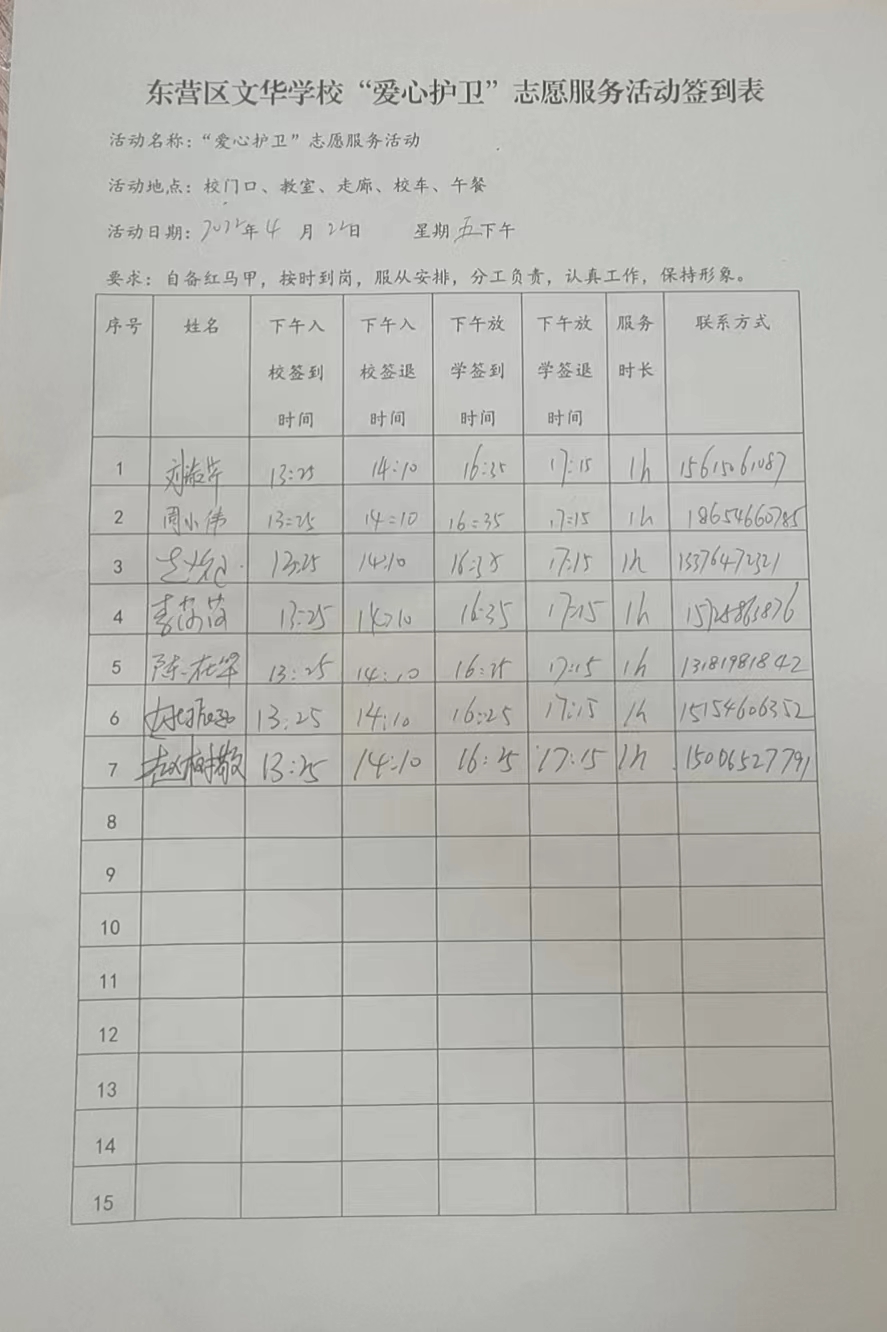 东营区文华学校“爱心护卫”志愿服务活动签到表
活动名称：“爱心护卫”志愿服务活动
活动地点：校门口、教室、走廊、校车、午餐
活动日期：2022年4月22日 星期五下午
要求：自备红马甲，按时到岗，服从安排，分工负责，认真工作，保持形象。
序号 姓名 下午入校签到时间 下午入校签退时间 下午放学签到时间 下午放学签退时间 服务时长 联系方式
1 13:25 14:10 16:35 17:15 1h 15615061087
2 周小伟 13:25 14:10 16:35 17:15 1h 18654660785
3 13:25 14:10 16:35 17:15 1h 13376472321
4 李莎莎 13:25 14:10 16:35 17:15 1h
5 13:25 14:10 16:25 17:15 1h 13181981842
6 13:25 14:10 16:25 17:15 1h 15154606352
7 13:25 14:10 16:25 17:15 1h 15006527791
8
9
10
11
12
13
14
15